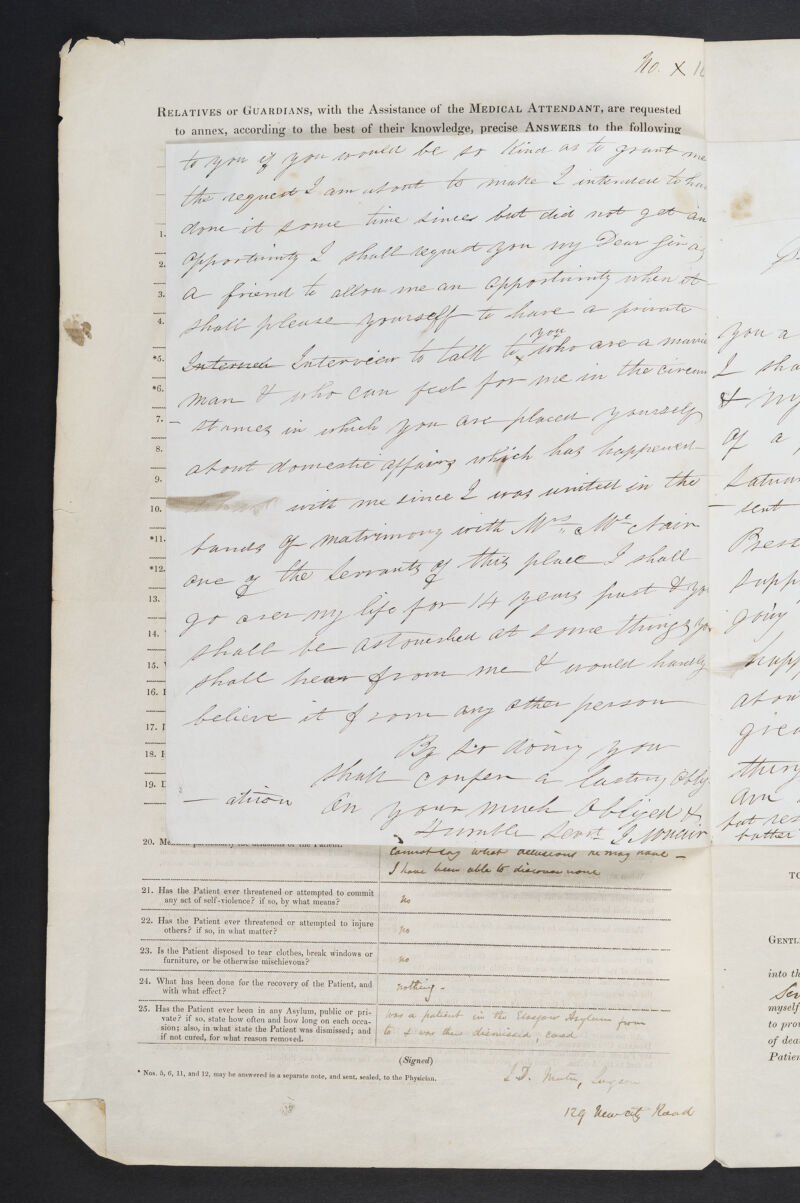 No. X
RELATIVES or GUARDIANS, with the Assistance of the MEDICAL ATTENDANT, are requested
to annex, according to the best of their knowledge, precise ANSWERS to the following
to you if you would be so kind as to grant me
the request I am about to make I intended to have
done it some time since but did not get an
opportunity I shall request you my Dear Sir as
a friend to allow me an opportunity when it
shall please yourself to have a private
Interview to talk to you who are a married
man & who can feel for me in the circum
stances in which you are placed yourself
about domestic affairs which has happened
with me since I was united in the
bands of matrimony with Mrs McNair
one of the Servants of this place I shall
go over my life for 14 years past & you
shall be astonished at some things you
shall hear from me & would hardly
believe it from any other person
By so doing you
shall confer a lasting oblig
— ation On your much Obliged &
Humble Servt
you a
I sha
& my
of a
sent
Prese
supp
going
happ
abou
grea
thing
am
1.
2.
3.
4.
*5.
*6.
7.
8.
9.
10.
*11.
*12.
13.
14.
15.
16.
17.
18.
19.
20.
cannot say what delusions he may have —
I have been able to discover none
21. Has the Patient ever threatened or attempted to commit
any act of self-violence? if so, by what means?
no
22. Has the Patient ever threatened or attempted to injure
others? if so, in what matter?
no
23. Is the Patient disposed to tear clothes, break windows or
furniture, or be otherwise mischievous?
no
24. What has been done for the recovery of the Patient, and
with what effect?
nothing -
25. Has the Patient ever been in any Asylum, public or pri-
vate? if so, state how often and how long on each occa-
sion; also, in what state the Patient was dismissed; and
if not cured, for what reason removed.
was a patient in the Glasgow Asylum from
to & was then dismissed, cured
(Signed)
* Nos. 5, 6, 11, and 12, may be answered in a separate note, and sent, sealed, to the Physician.
129 New City Road
TO
GENTL
into th
myself
to pro
of dea
Patien